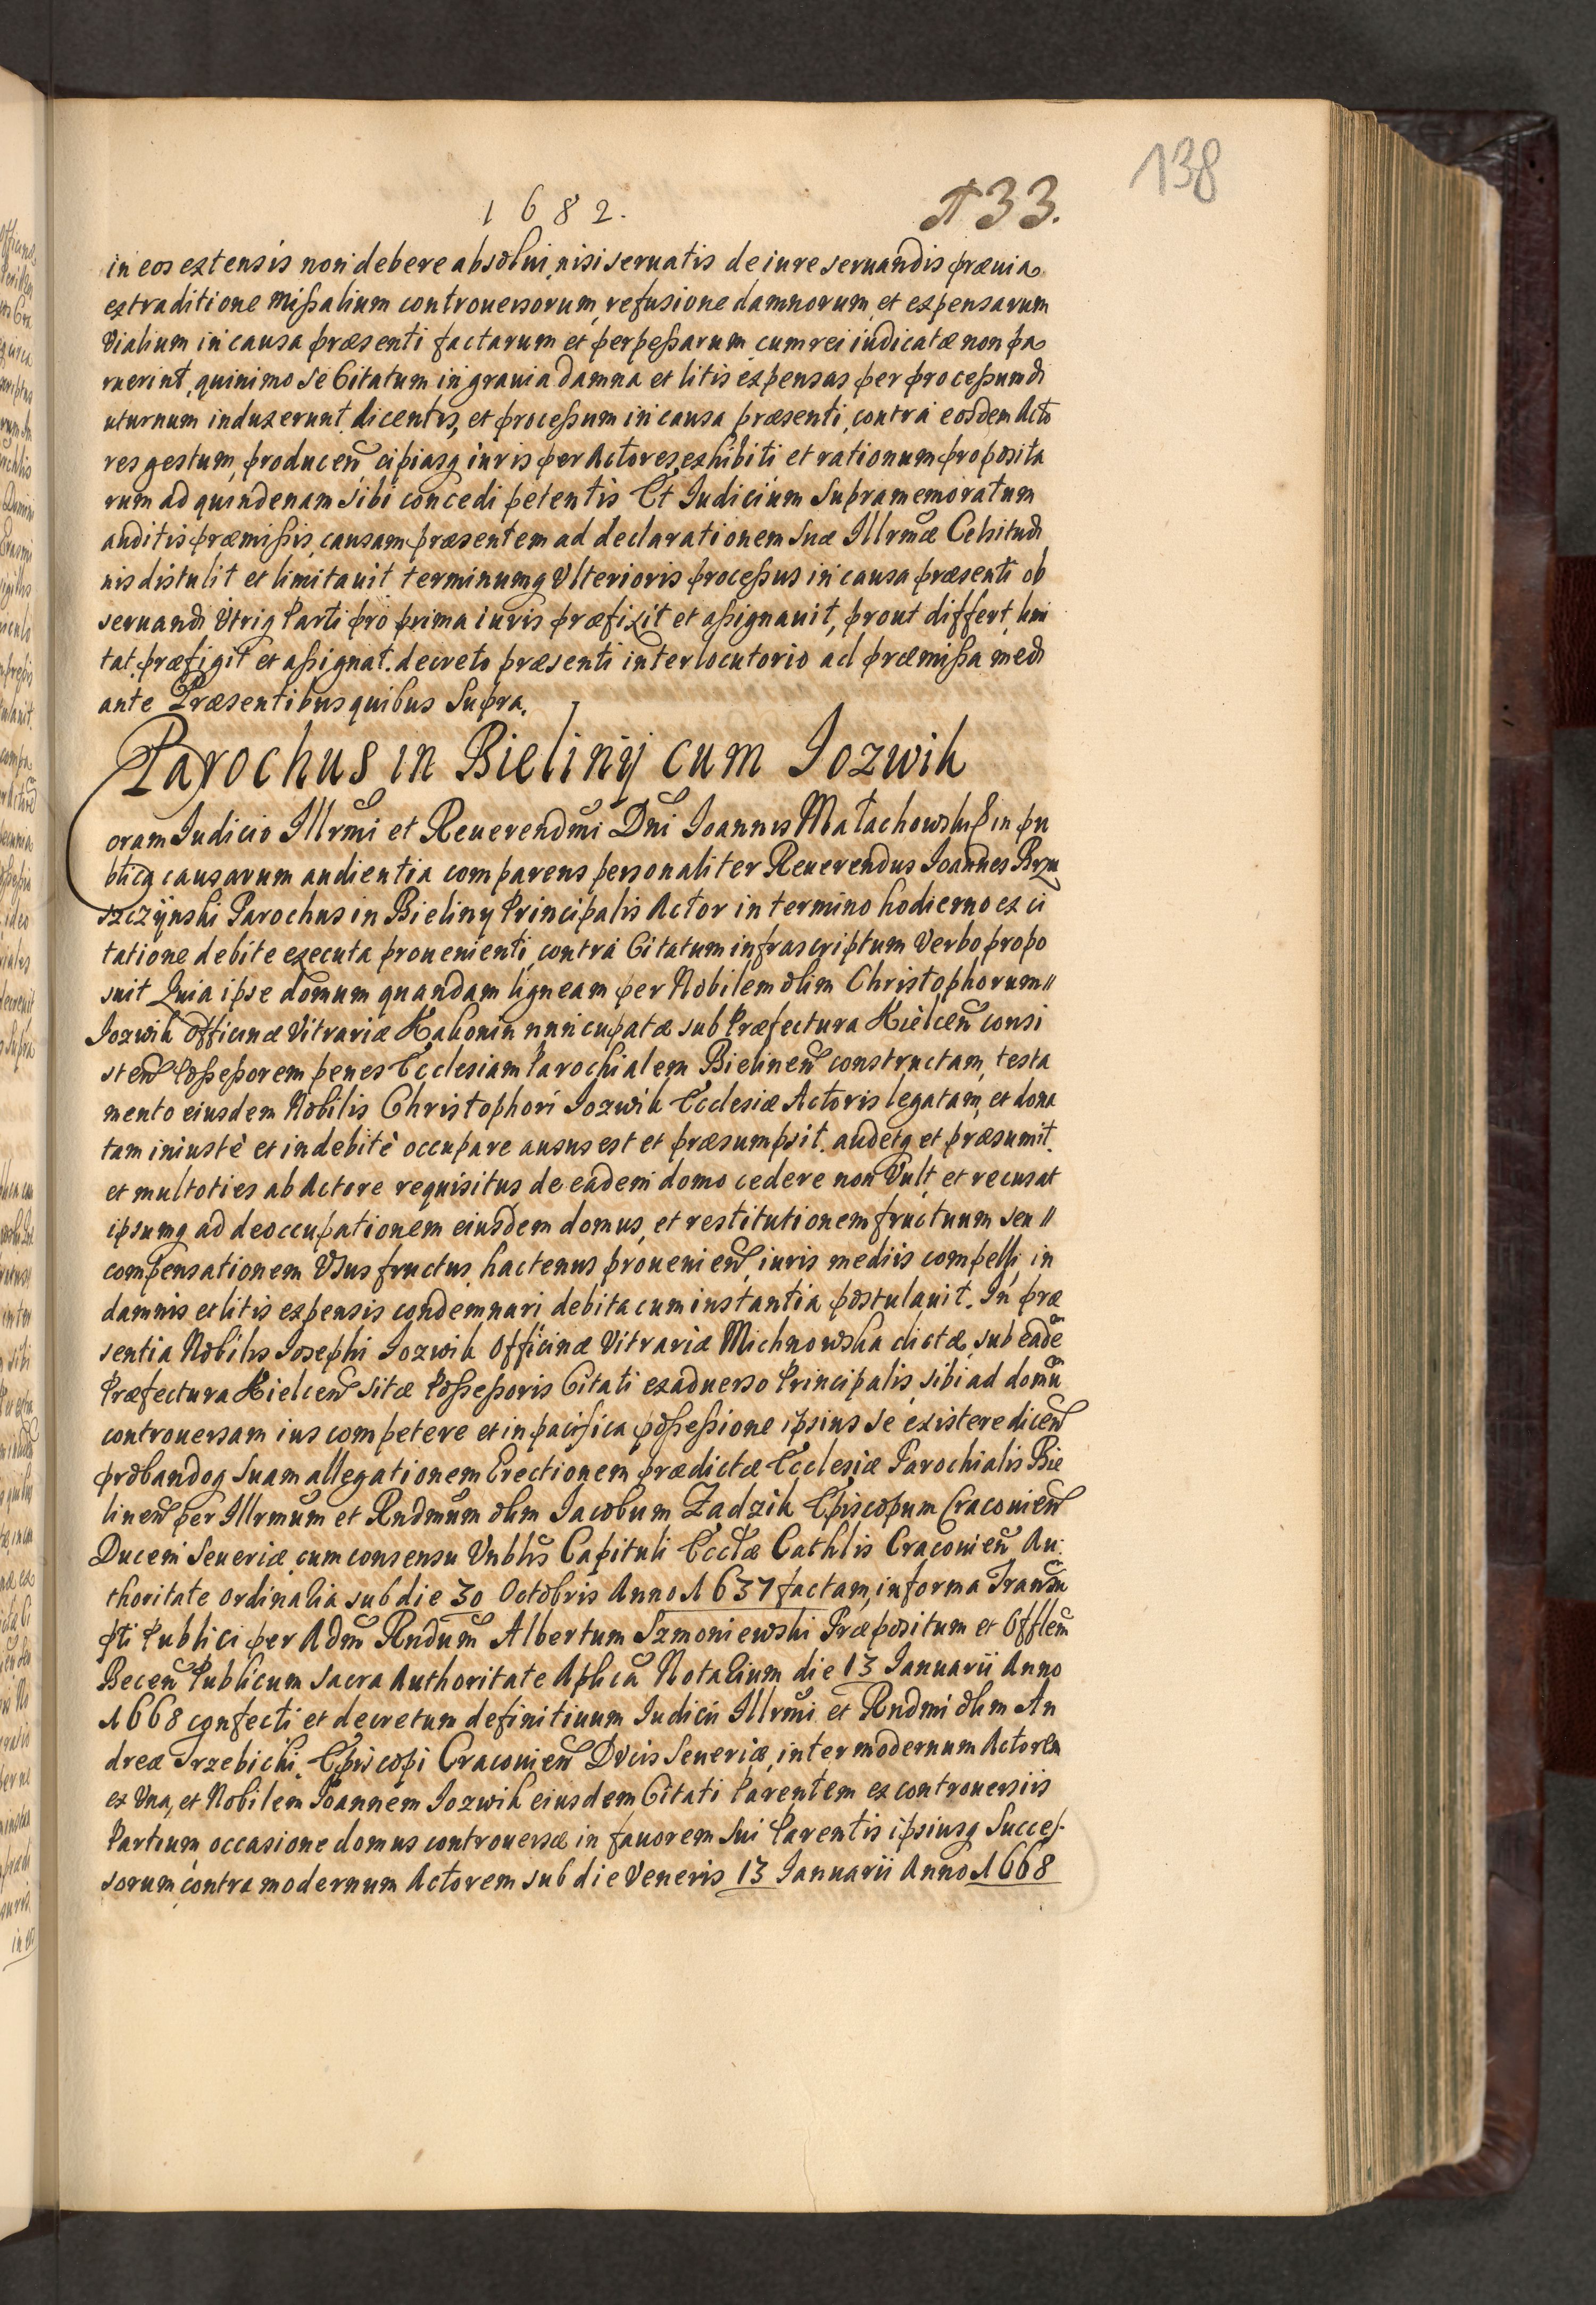 138
1682.
133.
in eos extensis non debere absolui, nisi seruatis de iure seruandis præuia
extraditione Missalium controuersorum, refusione damnorum, et expensarum
Vialium in causa præsenti factarum et perpessarum, cum rei iudicatæ non pa
ruerint, quinimo se Citatum in grauia damna et litis expensas per processum di
uturnum induxerunt, dicentis, et processum in causa præsenti, contra eosdem Acto
res gestum, producen̄ cipiasq iuris per Actores exhibiti et rationum proposita
rum ad quindenam sibi concedi petentis Et Iudicium Supramemoratum
auditis præmissis, causam præsentem ad declarationem Suæ Illrmæ Celsitudi
nis distulit et limitauit terminumq Vlterioris processus in causa præsenti ob
seruandi Vtriq Parti pro prima iuris præfixit et assignauit, prout differt, limi
tat, præfigit et assignat. decreto præsenti interlocutorio ad præmissa medi
ante Præsentibus quibus Supra.
Parochus in Bielinÿ cum Iozwik
Coram Iudicio Illrmi et Reuerendmi Dni Ioannis Małachowski in pu
blicq causarum audientia comparens personaliter Reuerendus Ioannes Brzu
szczÿnski Parochus in Bieliny Principalis Actor in termino hodierno ex ci
tatione debite executa prouenienti, contra Citatum infrascriptum Verbo propo
suit Quia ipse domum quandam ligneam per Nobilem olim Christophorum //
Iozwik Officinæ Vitrariæ Hakonin nuncupatæ sub Præfectura Kielcen̄ consi
sten̄ Possessorem penes Ecclesiam Parochialem Bielinen̄ constructam, testa
mento eiusdem Nobilis Christophori Iozwik Ecclesiæ Actoris legatam, et dona
tam iniustè et indebitè occupare ausus est et præsumpsit. audetq et præsumit.
et multoties ab Actore requisitus de eadem domo cedere non Vult, et recusat
ipsumq ad deoccupationem eiusdem domus, et restitutionem fructuum seu //
compensationem Vsus fructus hactenus prouenien̄, iuris mediis compelli, in
damnis et litis expensis condemnari debita cum instantia postulauit. In præ
sentia Nobilis Iosephi Iozwik Officinæ Vitrariæ Michnowska dictæ, sub eadē
Præfectura Kielcen̄ sitæ Possessoris Citati ex aduerso Principalis, sibi ad domū
controuersam ius competere et in pacifica possessione ipsius se existere dicen̄
probandoq suam allegationem Erectionem prædictæ Ecclesiæ Parochialis Bie
linen̄ per Illrmum et Rndmum olim Iacobum Zadzik Episcopum Craconien̄
Ducem Seueriæ, cum consensu Vnblis Capituli Ecclæ Cathlis Craconien̄ Au:
thoritate ordinalia sub die 30 Octobris Anno 1637 factam, in forma Transu
pti Publici per Adm̄ Rndum Albertum Szmoniewski Præpositum et Offlem̄
Becen̄ Publicum Sacra Authoritate Aplica Notarium die 13 Ianuarii Anno
1668 confecti et decretum definitiuum Iudicii Illrmi et Rndmi olim An
dreæ Trzebicki, Episcopi Craconien̄ Ducis Seueriæ, inter modernum Actorem
ex Vna, et Nobilem Ioannem Iozwik eiusdem Citati Parentem ex controuersiis
Partium, occasione domus controuersæ in fauorem sui Parentis ipsiusq Succes-
sorum, contra modernum Actorem sub die Veneris 13 Ianuarii Anno 1668